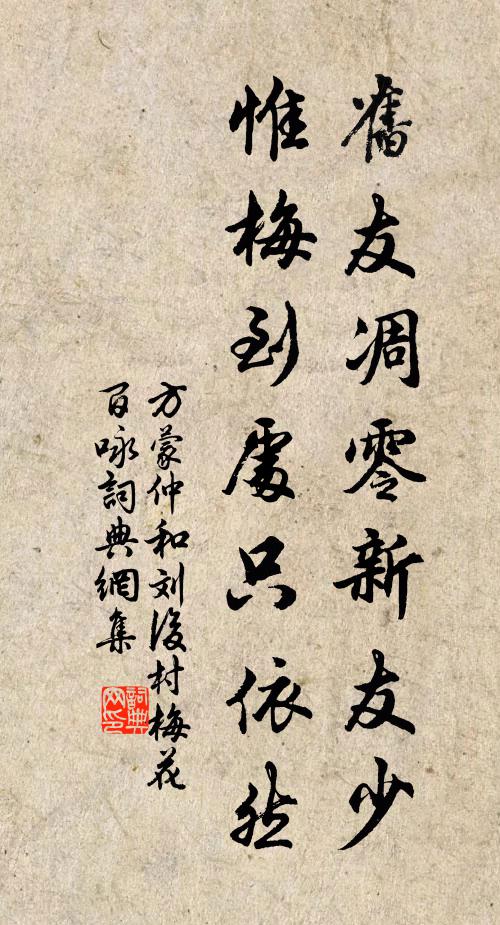 舊友凋零新友少
惟梅到處只依然
方蒙仲和刘後村梅花
百咏詞典網集
詞典
网印